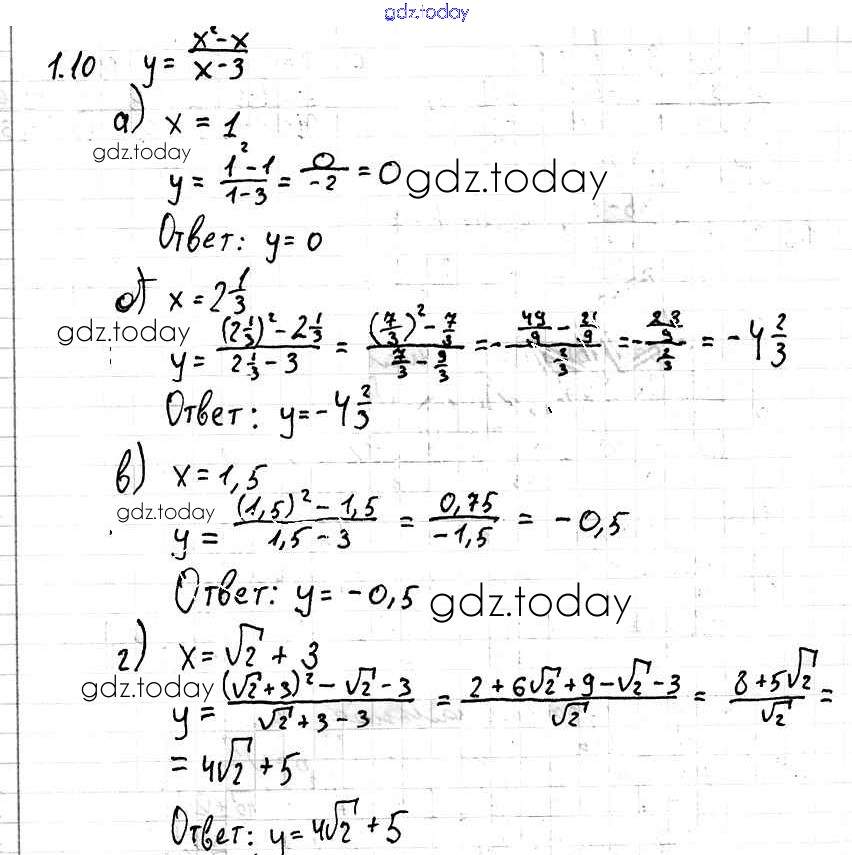 gdz.today
1.10 y = (x² - x)/(x - 3)
а) x = 1
gdz.today
y = (1² - 1)/(1 - 3) = 0/(-2) = 0 gdz.today
Ответ: y = 0
б) x = 2 1/3
gdz.today
y = ((2 1/3)² - 2 1/3)/(2 1/3 - 3) = ((7/3)² - 7/3)/(7/3 - 9/3) = -(49/9 - 21/9)/(2/3) = -(28/9)/(2/3) = -4 2/3
Ответ: y = -4 2/3
в) x = 1,5
gdz.today
y = ((1,5)² - 1,5)/(1,5 - 3) = 0,75/(-1,5) = -0,5
Ответ: y = -0,5 gdz.today
г) x = √2 + 3
gdz.today
y = ((√2 + 3)² - √2 - 3)/(√2 + 3 - 3) = (2 + 6√2 + 9 - √2 - 3)/√2 = (8 + 5√2)/√2 =
= 4√2 + 5
Ответ: y = 4√2 + 5